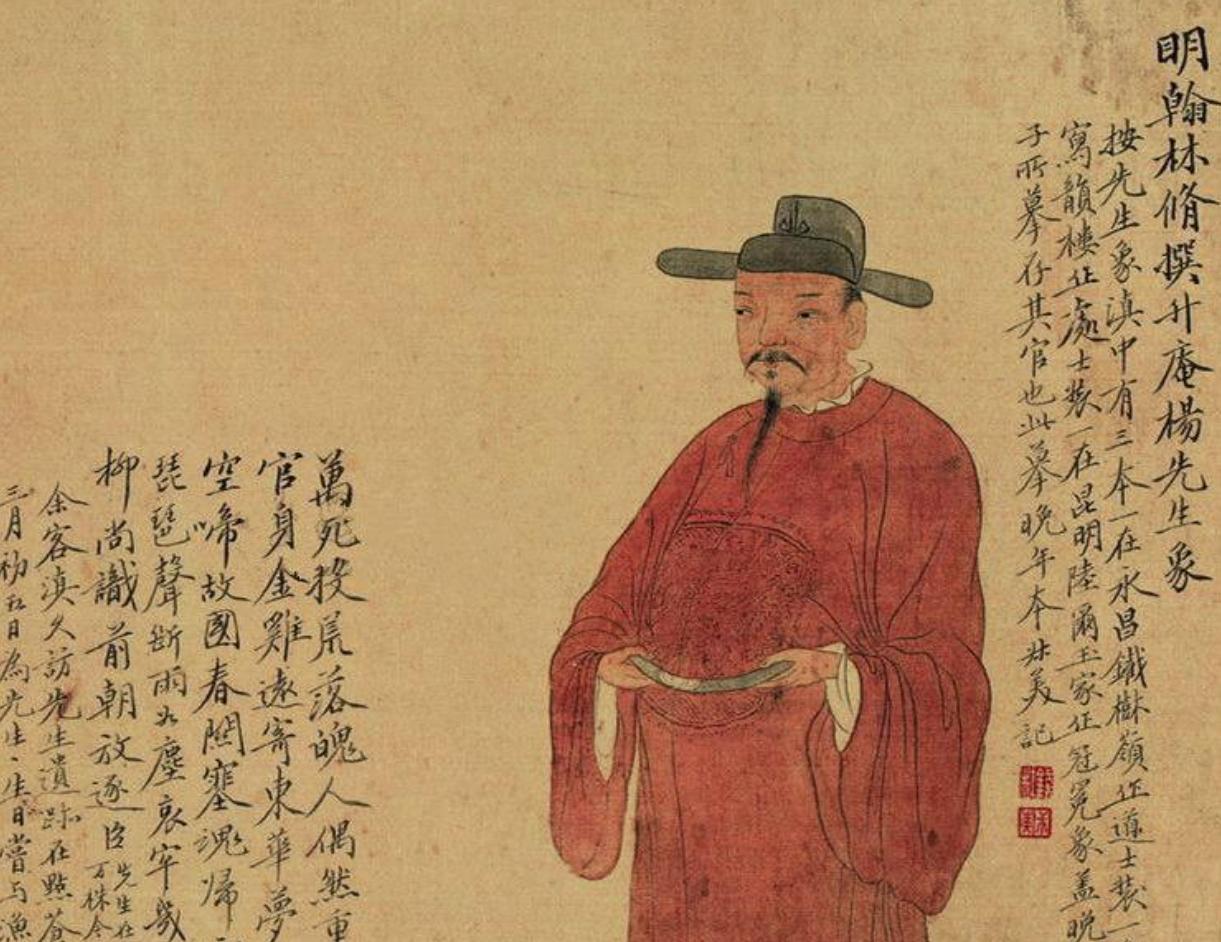 明翰林脩撰升庵楊先生象
按先生象滇中有三本一在永昌鐵樹嶺作道士裝一
寫韻樓作處士裝一在昆明陸爾玉家作冠冕象蓋晚
子所摹存其官也此摹晚年本廾美記
萬死投荒落魄人偶然重
官身金雞遠寄東華夢
空啼故國春關塞魂歸
琵琶聲斷雨如塵哀牢幾
柳尚識前朝放逐臣
先生在
万株今
余客滇久訪先生遺跡在點蒼
三月初五日為先生生日嘗与漁